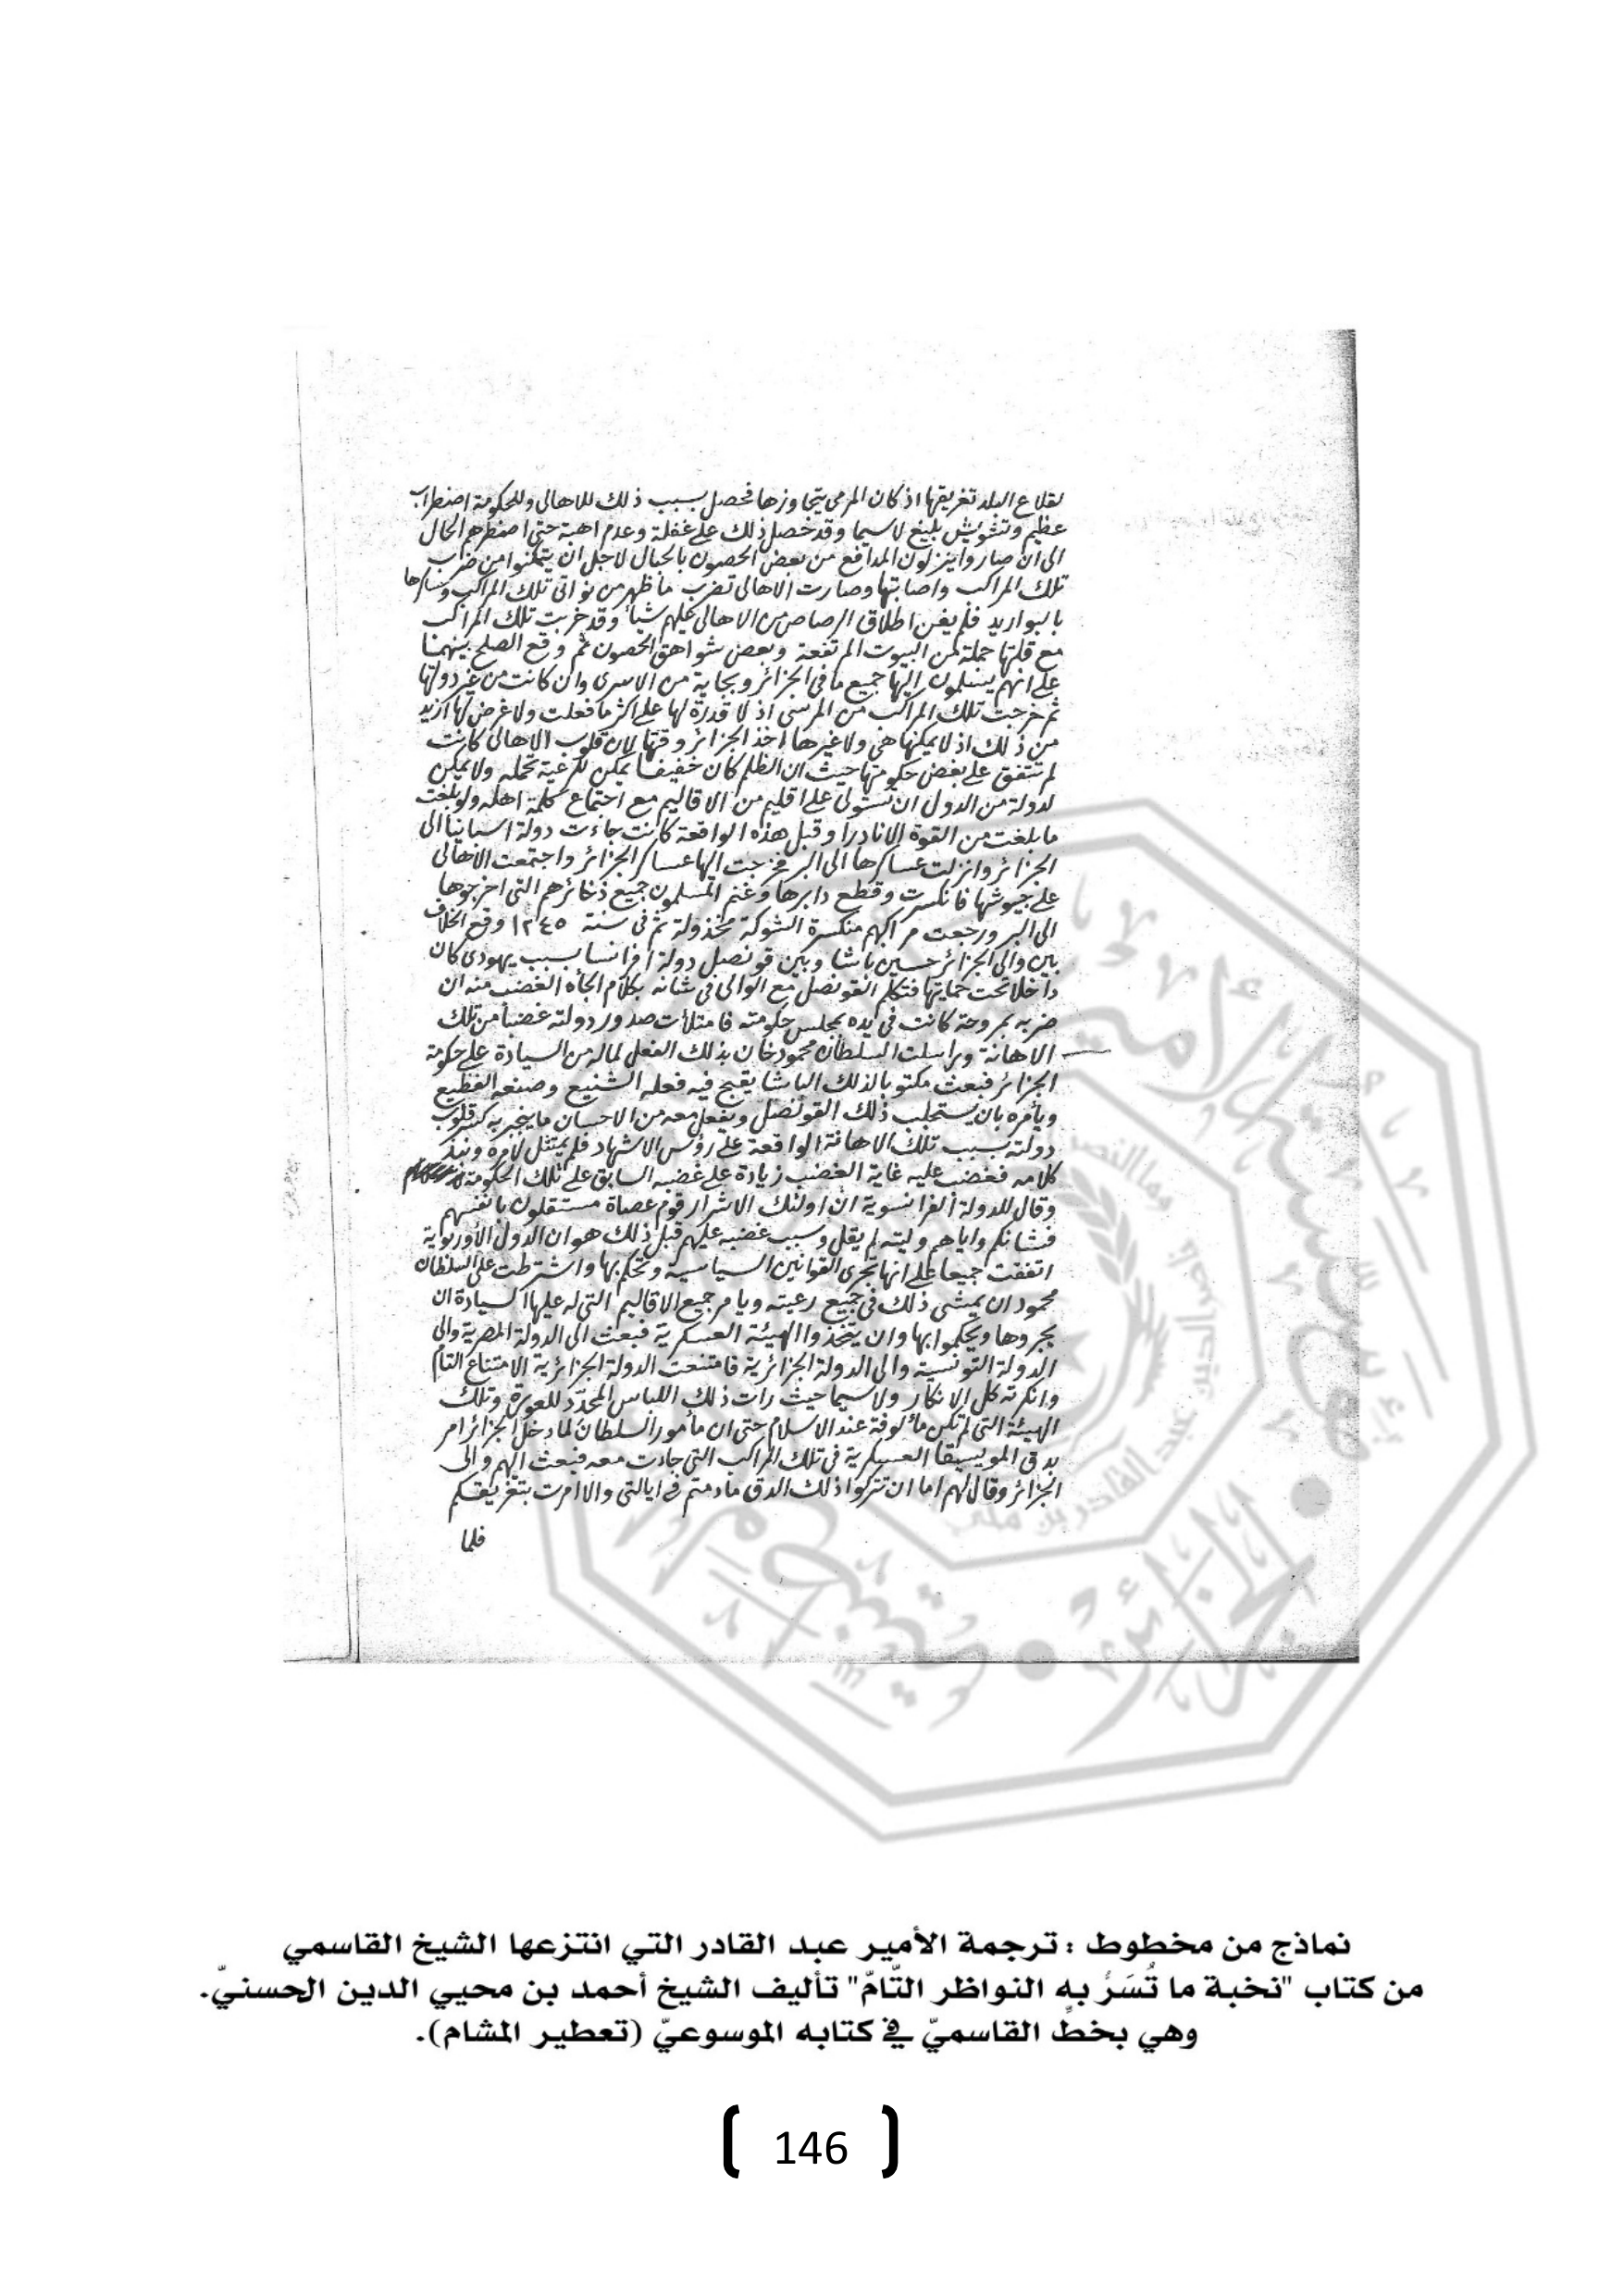 لقلاع البلد تغريقها اذ كان المرمى يتجاوزها فحصل بسبب ذلك للاهالى وللحكومة اضطراب
عظيم وتشويش بليغ لاسيما وقد حصل ذلك على غفلة وعدم اهبة حتى اضطرهم الحال
الى ان صاروا ينزلون المدافع من بعض الحصون بالحبال لاجل ان يتمكنوا من ضرب
تلك المراكب واصابتها وصارت الاهالى تضرب ما ظهر من نواتى تلك المراكب وعساكرها
بالبواريد فلم يغن اطلاق الرصاص من الاهالى عليهم شيأ وقد خربت تلك المراكب
مع قلتها جملة من البيوت المرتفعة وبعض شواهق الحصون ثم وقع الصلح بينهما
على انهم يسلمون اليها جميع ما فى الجزائر وبجاية من الاسرى وان كانت من غير دولتها
ثم خرجت تلك المراكب من المرسى اذ لا قدرة لها على اكثر ما فعلت ولا غرض لها ازيد
من ذلك اذ لا يمكنها هى ولا غيرها اخذ الجزائر وقتها لان قلوب الاهالى كانت
لم تتفق على بغض حكومتها حيث ان الظلم كان خفيفا يمكن للرعية تحمله ولا يمكن
لدولة من الدول ان تستولى على اقليم من الاقاليم مع اجتماع كلمة اهله ولو بلغت
ما بلغت من القوة الا نادرا وقبل هذه الواقعة كانت جاءت دولة اسبانيا الى
الجزائر وانزلت عساكرها الى البر فخرجت اليها عساكر الجزائر واجتمعت الاهالى
على جيوشها فانكسرت وقطع دابرها وغنم المسلمون جميع ذخائرهم التى اخرجوها
الى البر ورجعت مراكبهم منكسرة الشوكة مخذولة ثم فى سنة ١٢٤٥ وقع الخلاف
بين والى الجزائر حسين باشا وبين قونصل دولة افرانسا بسبب يهودى كان
داخلا تحت حمايتها فتكلم القونصل مع الوالى فى شانه بكلام الجأه الغضب منه ان
ضربه بمروحة كانت فى يده بمجلس حكومته فامتلأت صدور دولته غضبا من تلك
الاهانة وراسلت السلطان محمود خان بذلك الفعل لماله من السيادة على حكومة
الجزائر فبعث مكتوبا لذلك الباشا يقبح فيه فعله الشنيع وصنعه الفظيع
ويأمره بان يستجلب ذلك القونصل ويفعل معه من الاحسان ما ينجبر به كسر قلوب
دولته بسبب تلك الاهانة الواقعة على رؤس الاشهاد فلم يمتثل لامره ونبذ
كلامه فغضب عليه غاية الغضب زيادة على غضبه السابق على تلك الحكومة
وقال للدولة الفرانسوية ان اولئك الاشرار قوم عصاة مستقلون بانفسهم
فشانكم واياهم وليته لم يقل وسبب غضبه عليهم قبل ذلك هو ان الدول الأوربوية
اتفقت جميعا على انها تجرى القوانين السياسية وتحكم بها واشترطت على السلطان
محمود ان يمشى ذلك فى جميع رعيته ويامر جميع الاقاليم التى له عليها السيادة ان
يجروها ويحكموا بها وان يتخذوا الهيئة العسكرية فبعث الى الدولة المصرية والى
الدولة التونسية والى الدولة الجزائرية فامتنعت الدولة الجزائرية الامتناع التام
وانكرته كل الانكار ولاسيما حيث رات ذلك اللباس المحدد للعورة وتلك
الهيئة التى لم تكن مألوفة عند الاسلام حتى ان مأمور السلطان لما دخل الجزائر امر
بدق الموسيقا العسكرية فى تلك المراكب التى جاءت معه فبعث اليهم والى
الجزائر وقال لهم اما ان تتركوا ذلك الدق مادمتم فى ايالتى والا امرت بتغريقكم
فلما
نماذج من مخطوط : ترجمة الأمير عبد القادر التي انتزعها الشيخ القاسمي
من كتاب "نخبة ما تُسَرُّ به النواظر التّامّ" تأليف الشيخ أحمد بن محيي الدين الحسنيّ.
وهي بخطّ القاسميّ في كتابه الموسوعيّ (تعطير المشام).
146